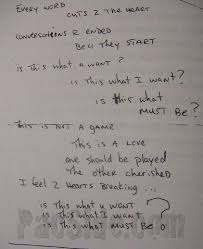 Every word
cuts 2 the heart
conversations R ended
Be4 they start
is this what u want?
is this what I want?
is this what
must be?
This is not a game
This is a love
one should be played
The other cherished
I feel 2 hearts breaking...
is this what u want
is this what I want ?
is this what must be